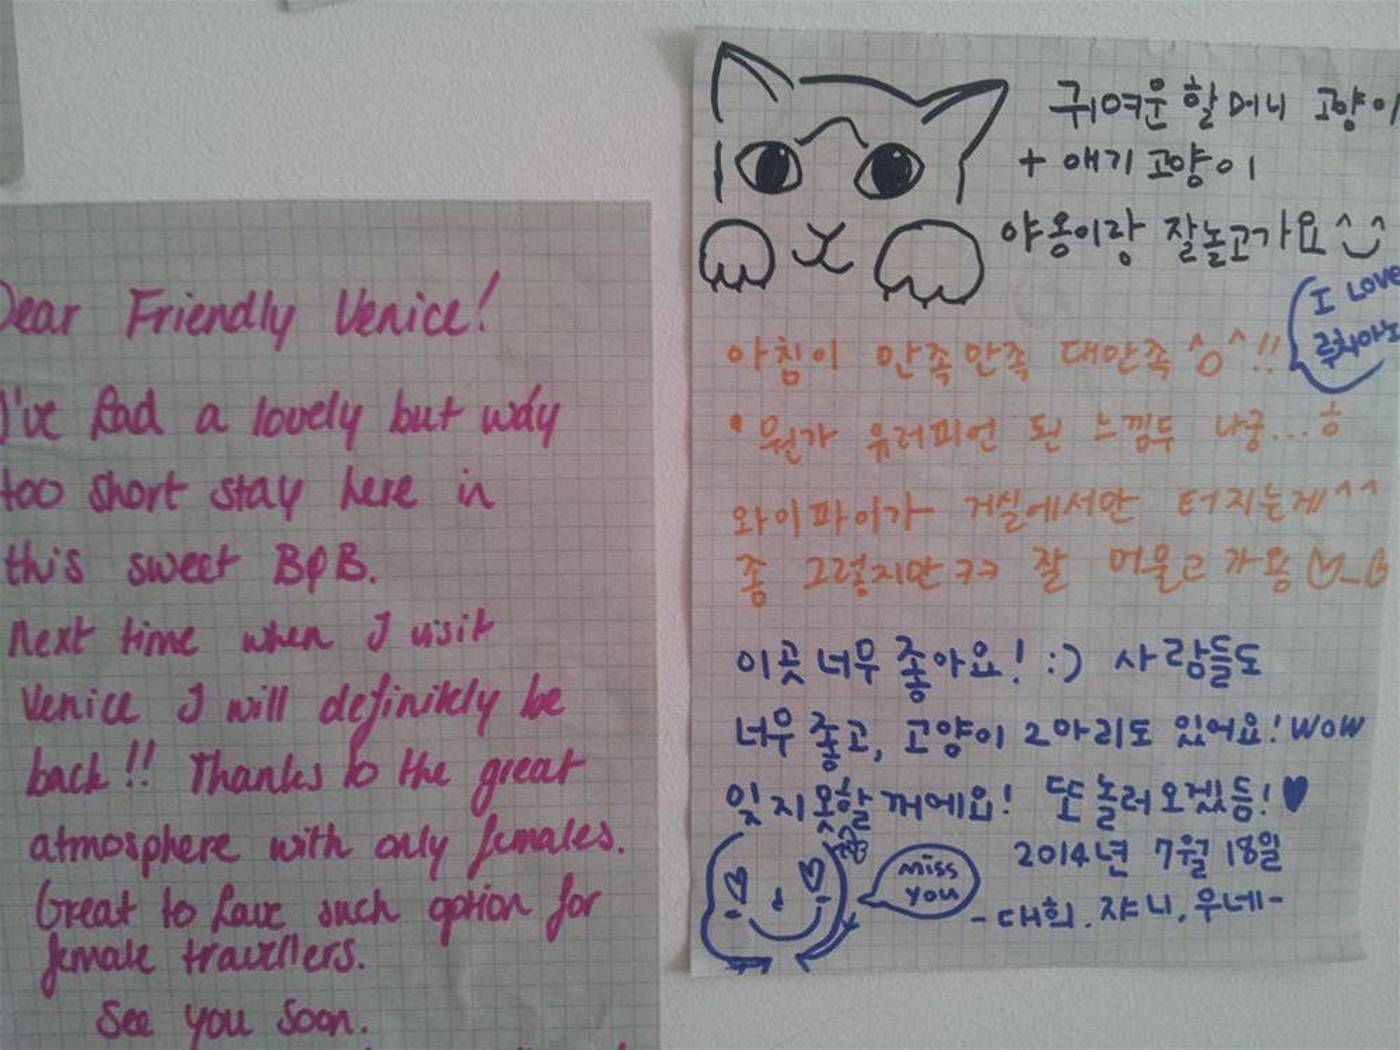 Dear Friendly Venice!
I've had a lovely but way
too short stay here in
this sweet B&B.
Next time when I visit
Venice I will definitely be
back!! Thanks to the great
atmosphere with only females.
Great to have such option for
female travellers.
See you soon.
귀여운 할머니 고양이
+ 애기 고양이
야옹이랑 잘놀고가요^‿^
I LOVE
루치아노
아침이 만족만족 대만족^o^!!
뭔가 유러피언 된 느낌두 나궁...ㅎ
와이파이가 거실에서만 터지는게^^
좀 그렇지만ㅋㅋ 잘 머물고 가용
이곳 너무 좋아요! :) 사람들도
너무 좋고, 고양이 2마리도 있어요! WOW
잊지못할 꺼에요! 또 놀러오겠듬!♥
miss
you
2014년 7월 18일
-대희. 쟈니, 우네-